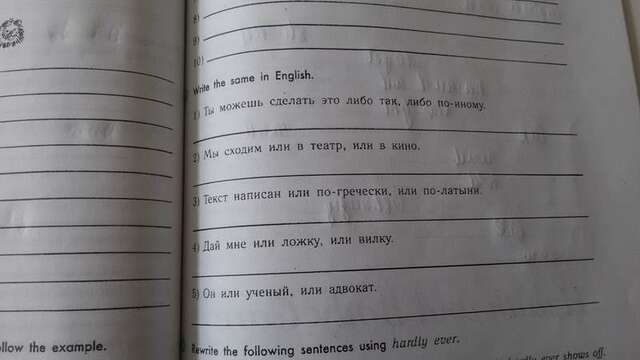 8)
9)
10)
Write the same in English.
1) Ты можешь сделать это либо так, либо по-иному.
2) Мы сходим или в театр, или в кино.
3) Текст написан или по-гречески, или по-латыни.
4) Дай мне или ложку, или вилку.
5) Он или ученый, или адвокат.
Rewrite the following sentences using hardly ever.
hardly ever shows off.
follow the example.